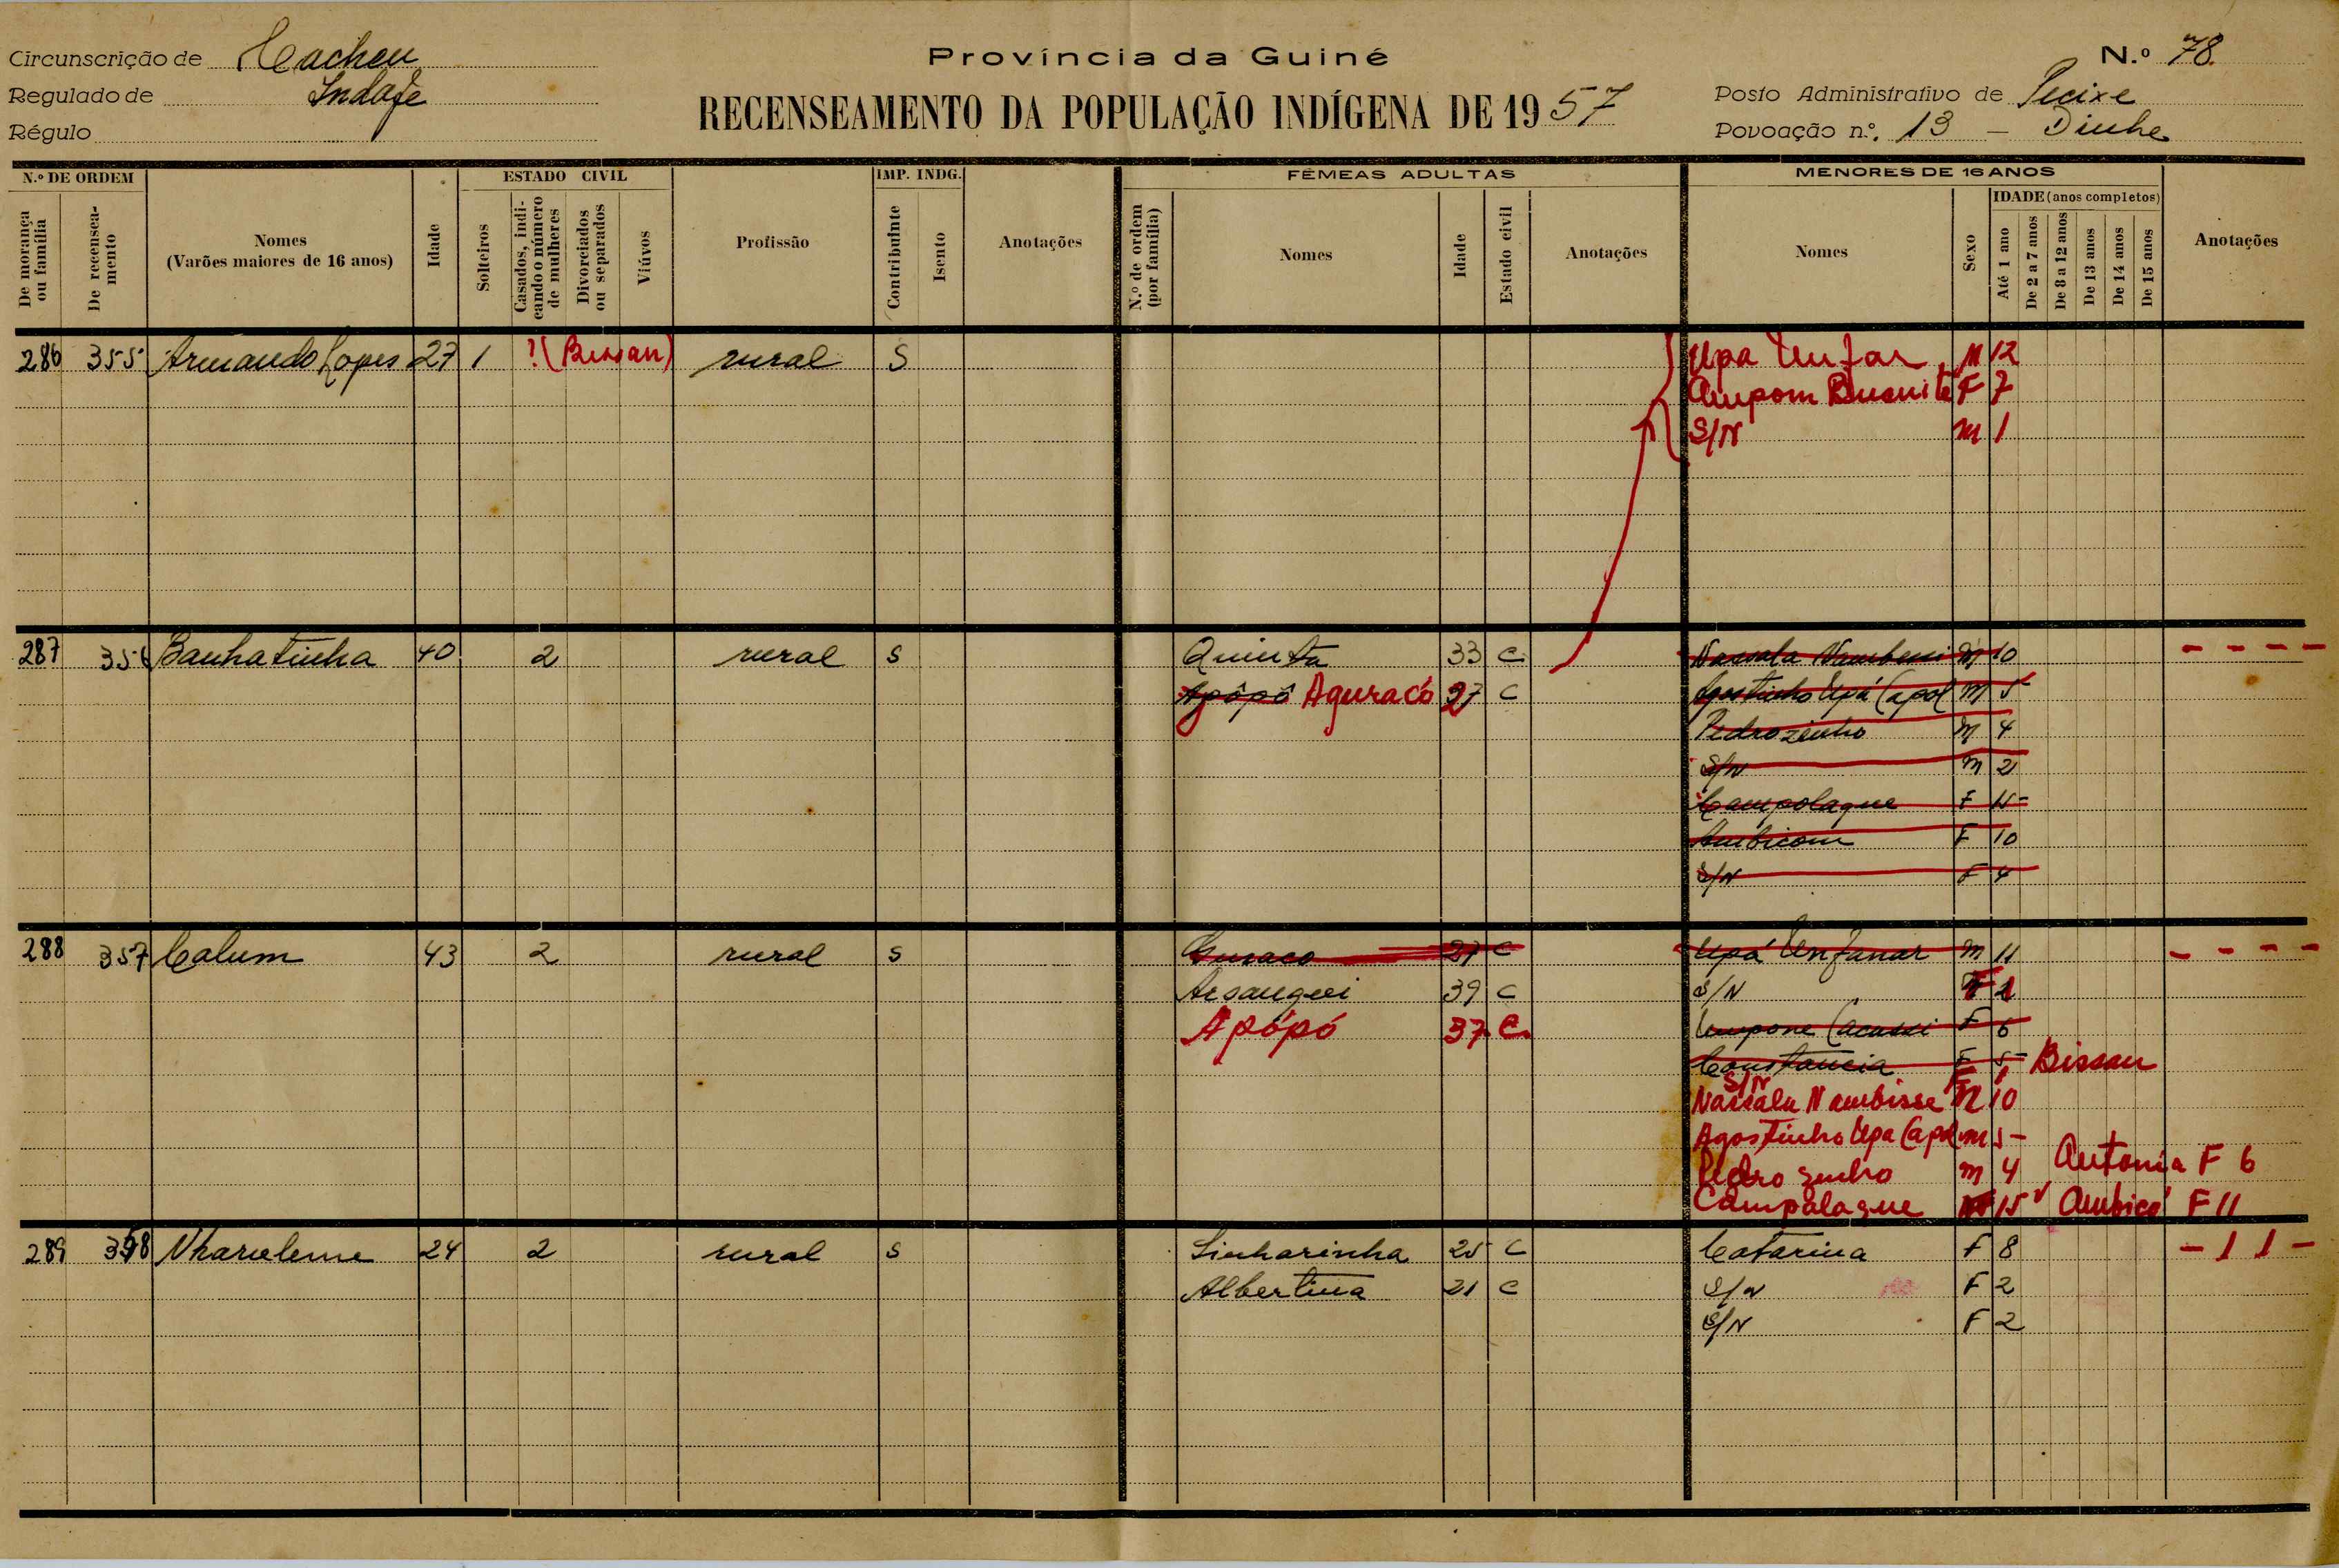 Circunscrição de Cacheu
Província da Guiné
N.º 78.
Regulado de Indafe
RECENSEAMENTO DA POPULAÇÃO INDÍGENA DE 19 57
Posto Administrativo de Pecixe
Régulo
Povoação n.º, 13 – Diuhe
N.º DE ORDEM
ESTADO CIVIL
IMP. INDG.
FÊMEAS ADULTAS
MENORES DE 16 ANOS
De morança ou família
De recenseamento
Nomes
(Varões maiores de 16 anos)
Idade
Solteiros
Casados, indicando o número de mulheres
Divorciados ou separados
Viúvos
Profissão
Contribuinte
Isento
Anotações
N.º de ordem (por família)
Nomes
Idade
Estado civil
Anotações
Nomes
Sexo
IDADE (anos completos)
Até 1 ano
De 2 a 7 anos
De 8 a 12 anos
De 13 anos
De 14 anos
De 15 anos
Anotações
286 355 Armando Lopes 27 1 ? (Bissau) rural S
Upa Unfar M 12
F 7
S/N M 1
287 356 Banhatinha 40 2 rural S Quinta 33 C M 10 - - - -
Apôpô Aguracó 27 C Agostinho Upá Capol M 5
Pedrozinho M 4
S/N M 2
Campolaque F 15
Ambicom F 10
S/N F 4
288 357 Calum 43 2 rural S 27 C Upá Unfanar M 11 - - - -
Arsangui 39 C S/N F
Apópó 37 C. F 6
Constancia F 5 Bissau
S/N F 1
Nassalu Nambisse M 10
Agostinho Upa Capol M 5
Pedro zinho M 4 Antonia F 6
Campalaque 15 Ambicó F 11
289 358 24 2 rural S Linharinha 25 C Catarina F 8 - 1 1 -
Albertina 21 C S/N F 2
S/N F 2